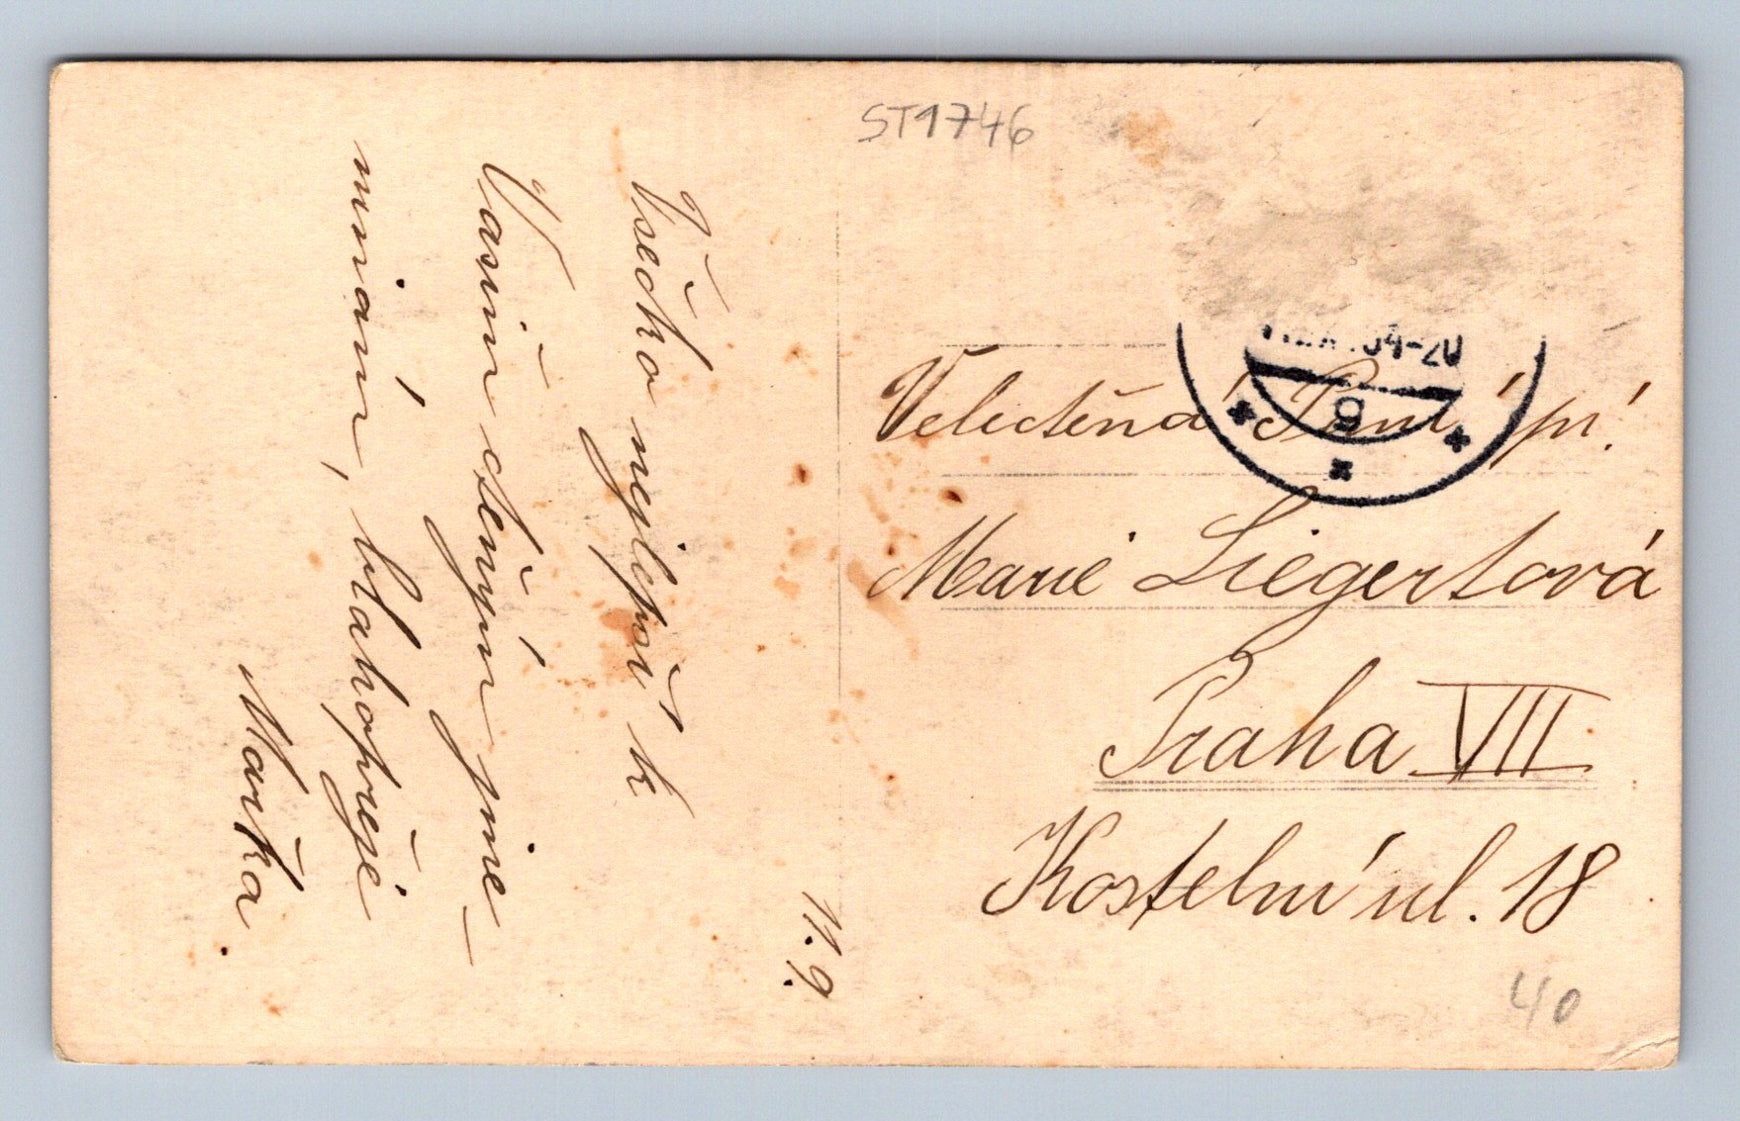 ST1746
Všečko nejlepší k
Vašim ctěným jme-
ninám, blahopřeje
Mařka.
11. 9.
Velectěná Paní, pí.
Marie Siegertová
Praha VII
Kostelní ul. 18
40